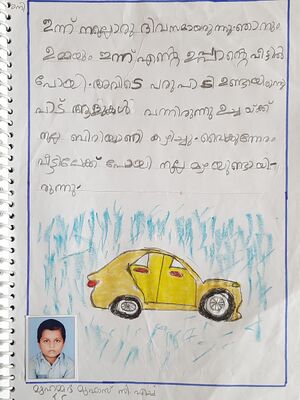 ഇന്ന് നല്ലൊരു ദിവസമായിരുന്നു. ഞാനും
ഉമ്മയും ഇന്ന് എന്റെ ഉപ്പാന്റെ വീട്ടിൽ
പോയി. അവിടെ പരുപാടി ഉണ്ടായിരുന്നു
പാട് ആളുകൾ വന്നിരുന്നു ഉച്ചയ്ക്ക്
നല്ല ബിരിയാണി കഴിച്ചു. വൈകുന്നേരം
വീട്ടിലേക്ക് പോയി നല്ല മഴയുണ്ടായി-
രുന്നു.
മുഹമ്മദ് മുഹാസ് സി.എച്ച്